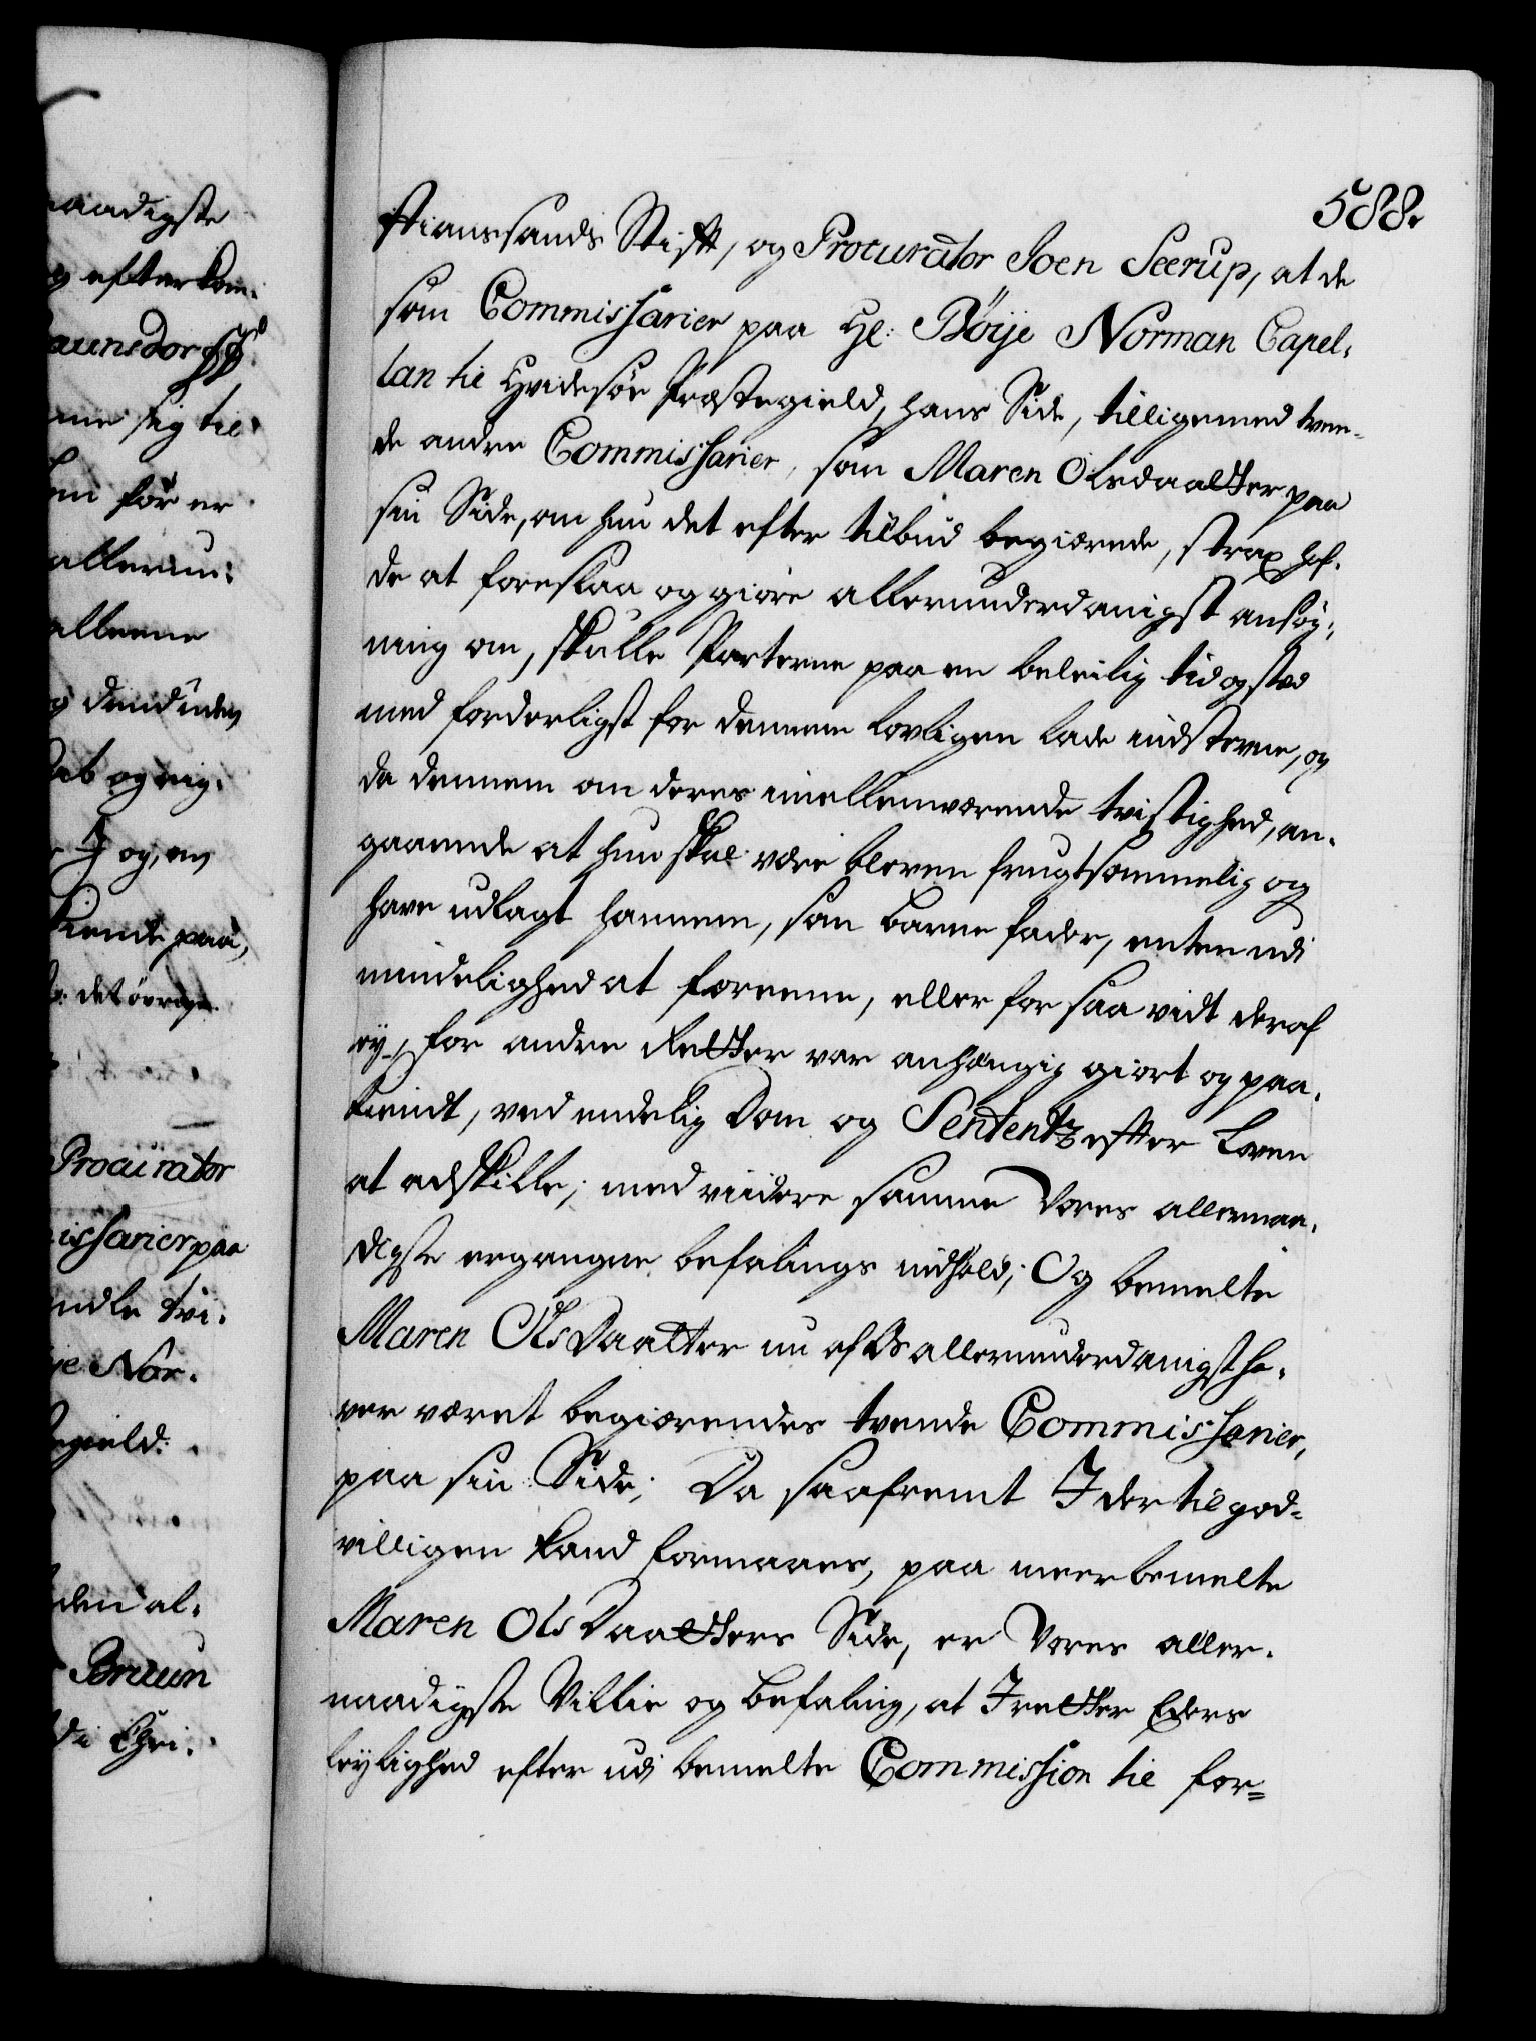 588.
stianssands Stift, og Procurator Soen Seerup, at de
som Commissarier paa Hr: Böije Norman Capel-
lan til Hvidesøe Præstegield, hans Side, tilligemed tven-
de andre Commissarier, som Maren Olsdaatter paa
sin Side, om hun det efter tilbud begiærede, strax haf-
de at foreslaa og giøre allerunderdanigst ansøg-
ning om, skulle Parterne paa en beleilig tid og stæd
med forderligst for dennem lovligen lade indstevne, og
da dennem om deres imellemværende tvistighed, an-
gaaende at hun skal være bleven frugtsommelig og
have udlagt hannem, som barne fader, enten udi
mindelighed at foreene, eller for saa vidt deraf
ey, for andre Retter var anhængig giort og paa-
kiendt, ved endelig Dom og Sententz efter Loven
at adskille; med videre samme Vores allernaa-
digste ergangne befalings indhold; Og bemelte
Maren OlsDaatter nu af Os allerunderdanigst ha-
ver været begiærendes tvende Commissarier,
paa sin Side; Da saafremt I der til god-
villigen kand formaaes, paa meerbemelte
Maren OlsDaatters Side, er Vores aller-
naadigste Villie og befaling, at I retter Eders
leylighed efter udi bemelte Commission til for-
naadigste
og efterkom-
me sig til
for er
allerun-
alleene
og
og, om
kiendt paa,
det øvrige
Procurator
issarier paa
ndle tvi-
je Nor-
gield.
den al-
Bruun
di Chri-